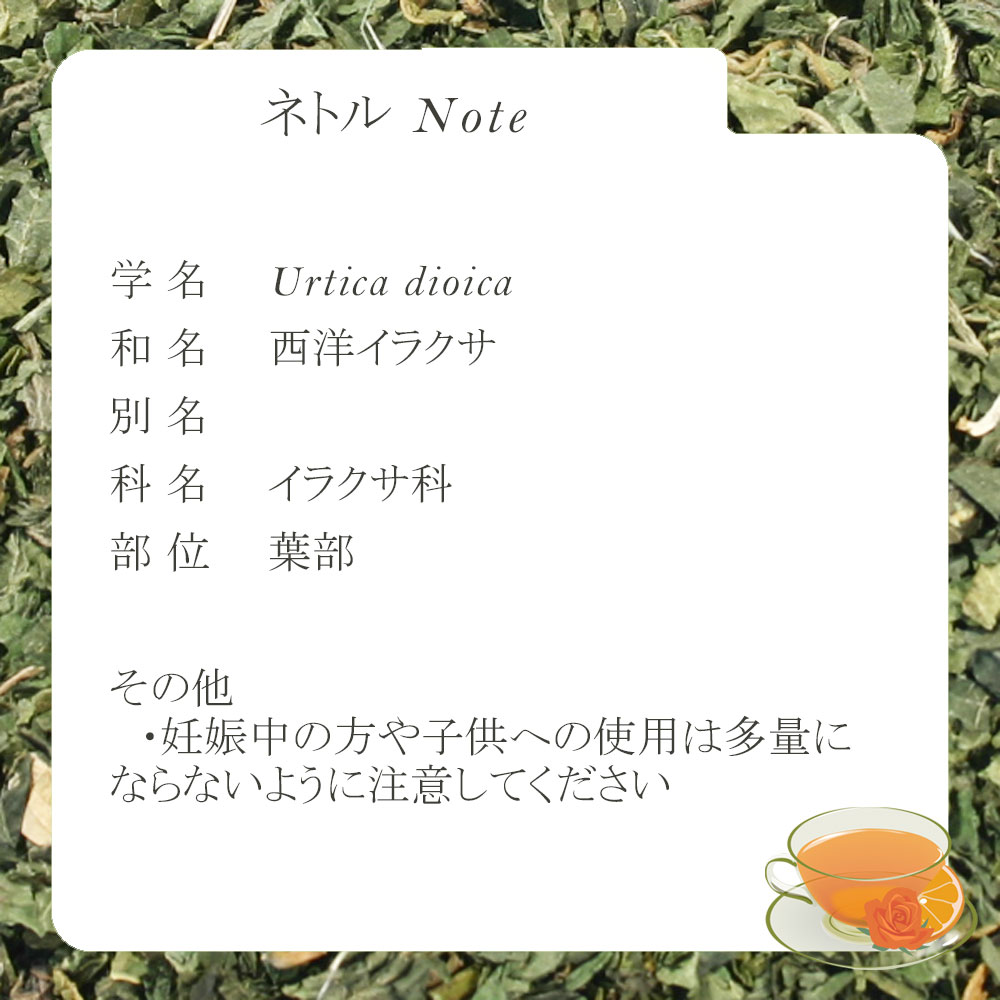 ネトル Note
学名 Urtica dioica
和名 西洋イラクサ
別名
科名 イラクサ科
部位 葉部
その他
・妊娠中の方や子供への使用は多量に
ならないように注意してください